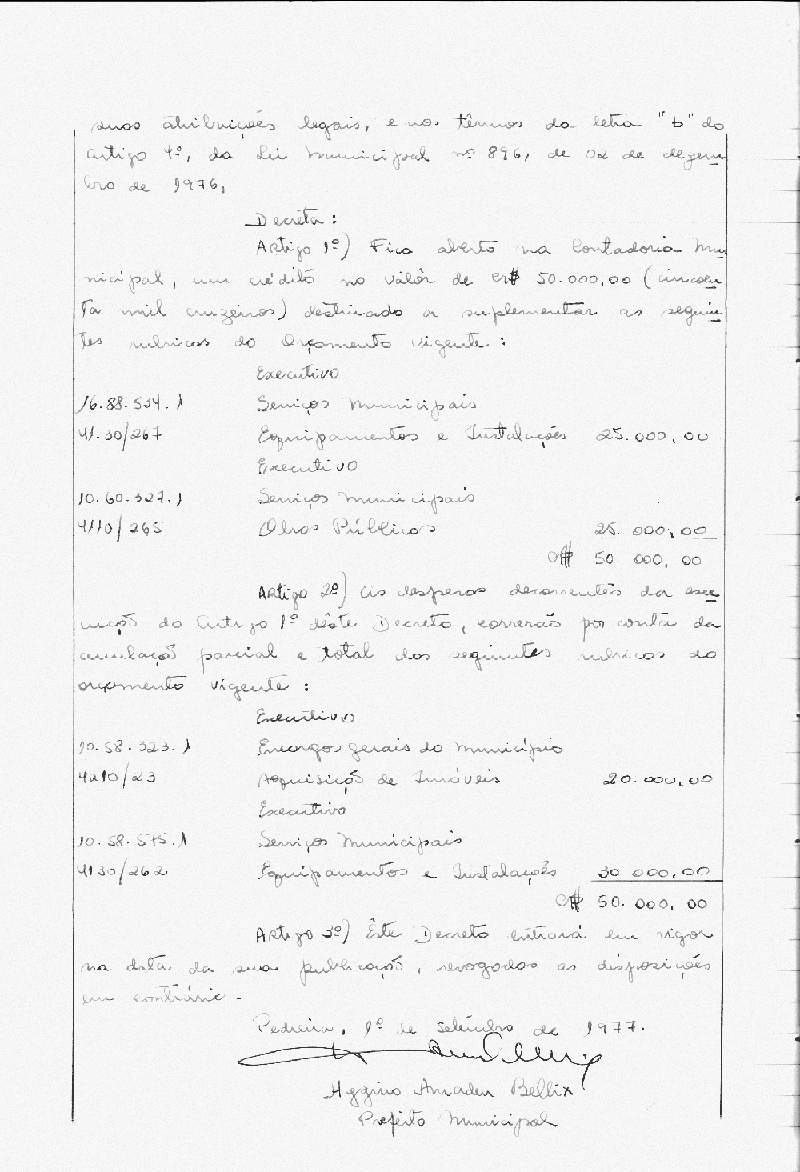 suas atribuições legais, e nos têrmos da letra "b" do
artigo 4º, da Lei Municipal nº 896, de 02 de dezem
bro de 1976,
Decreta:
Artigo 1º) Fica aberto na Contadoria Mu
nicipal, um crédito no valôr de cr$ 50.000,00 (cincoen
ta mil cruzeiros) destinado a suplementar as seguin
tes rubricas do Orçamento vigente.:
Executivo
16.88.534.1 Serviços Municipais
41.30/267 Equipamentos e Instalações 25.000,00
Executivo
10.60.327.1 Serviços Municipais
4110/265 Obras Públicas 25.000,00
Cr$ 50 000,00
Artigo 2º) As despesas decorrentes da exe
cução do Artigo 1º dêste Decreto, correrão por conta da
anulação parcial e total das seguintes rubricas do
orçamento vigente:
Executivo
10.58.323.1 Encargos gerais do Município
4210/23 Aquisição de Imóveis 20.000,00
Executivo
10.58.575.1 Serviços Municipais
4130/262 Equipamentos e Instalações 30 000,00
Cr$ 50.000,00
Artigo 3º) Êste Decreto entrará em vigor
na data da sua publicação, revogadas as disposições
em contrário.
Pedreira, 1º de setembro de 1977.
Hygino Amadeu Bellix
Prefeito Municipal